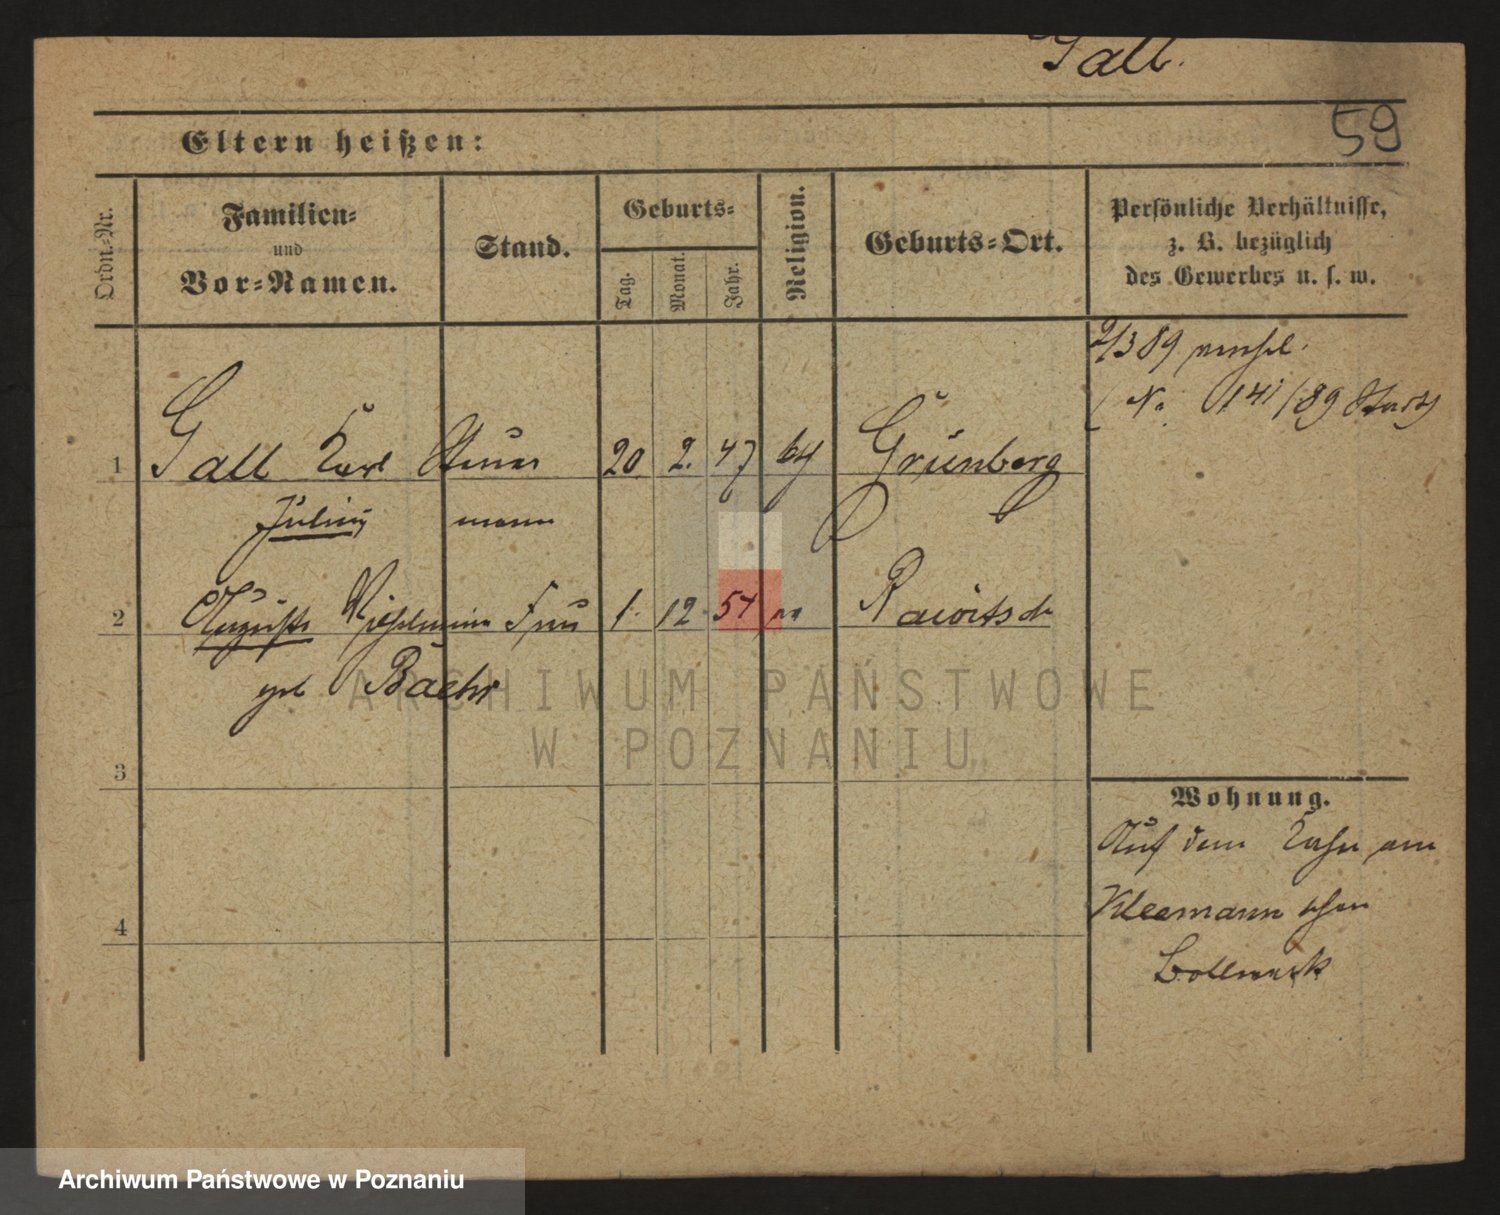 Gall.
59
Eltern heißen:
Ordn.-Nr.
Familien-
und
Vor-Namen.
Stand.
Geburts-
Tag.
Monat.
Jahr.
Religion.
Geburts-Ort.
Persönliche Verhältnisse,
z. B. bezüglich
des Gewerbes u. s. w.
2/3 89
(No 141/89
1 Gall Karl Steuer 20 2. 47 Grünberg
Julius mann
2 Auguste Wilhelmine Frau 1. 12 54 Rawitsch
geb Baehr
3
4
Wohnung.
Auf dem Kahn am
Kleemann schen
Bollwerk
ARCHIWUM PAŃSTWOWE
W POZNANIU
Archiwum Państwowe w Poznaniu